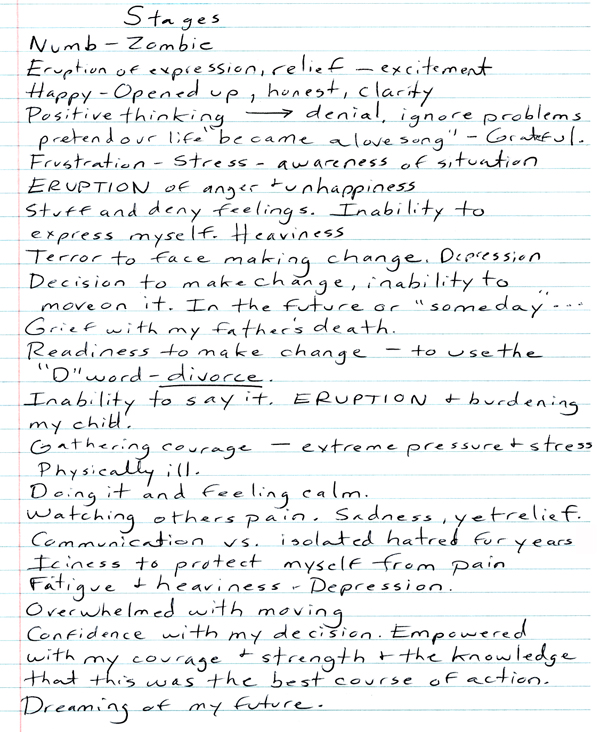 Stages
Numb - Zombie
Eruption of expression, relief - excitement
Happy - Opened up, honest, clarity
Positive thinking → denial, ignore problems
pretend our life "became a love song" - Grateful.
Frustration - Stress - awareness of situation
ERUPTION of anger + unhappiness
Stuff and deny feelings. Inability to
express myself. Heaviness
Terror to face making change. Depression
Decision to make change, inability to
move on it. In the future or "someday"...
Grief with my father's death.
Readiness to make change - to use the
"D" word - divorce.
Inability to say it. ERUPTION + burdening
my child.
Gathering courage - extreme pressure + stress
Physically ill.
Doing it and feeling calm.
Watching others pain. Sadness, yet relief.
Communication vs. isolated hatred for years
Iciness to protect myself from pain
Fatigue + heaviness - Depression.
Overwhelmed with moving
Confidence with my decision. Empowered
with my courage + strength + the knowledge
that this was the best course of action.
Dreaming of my future.